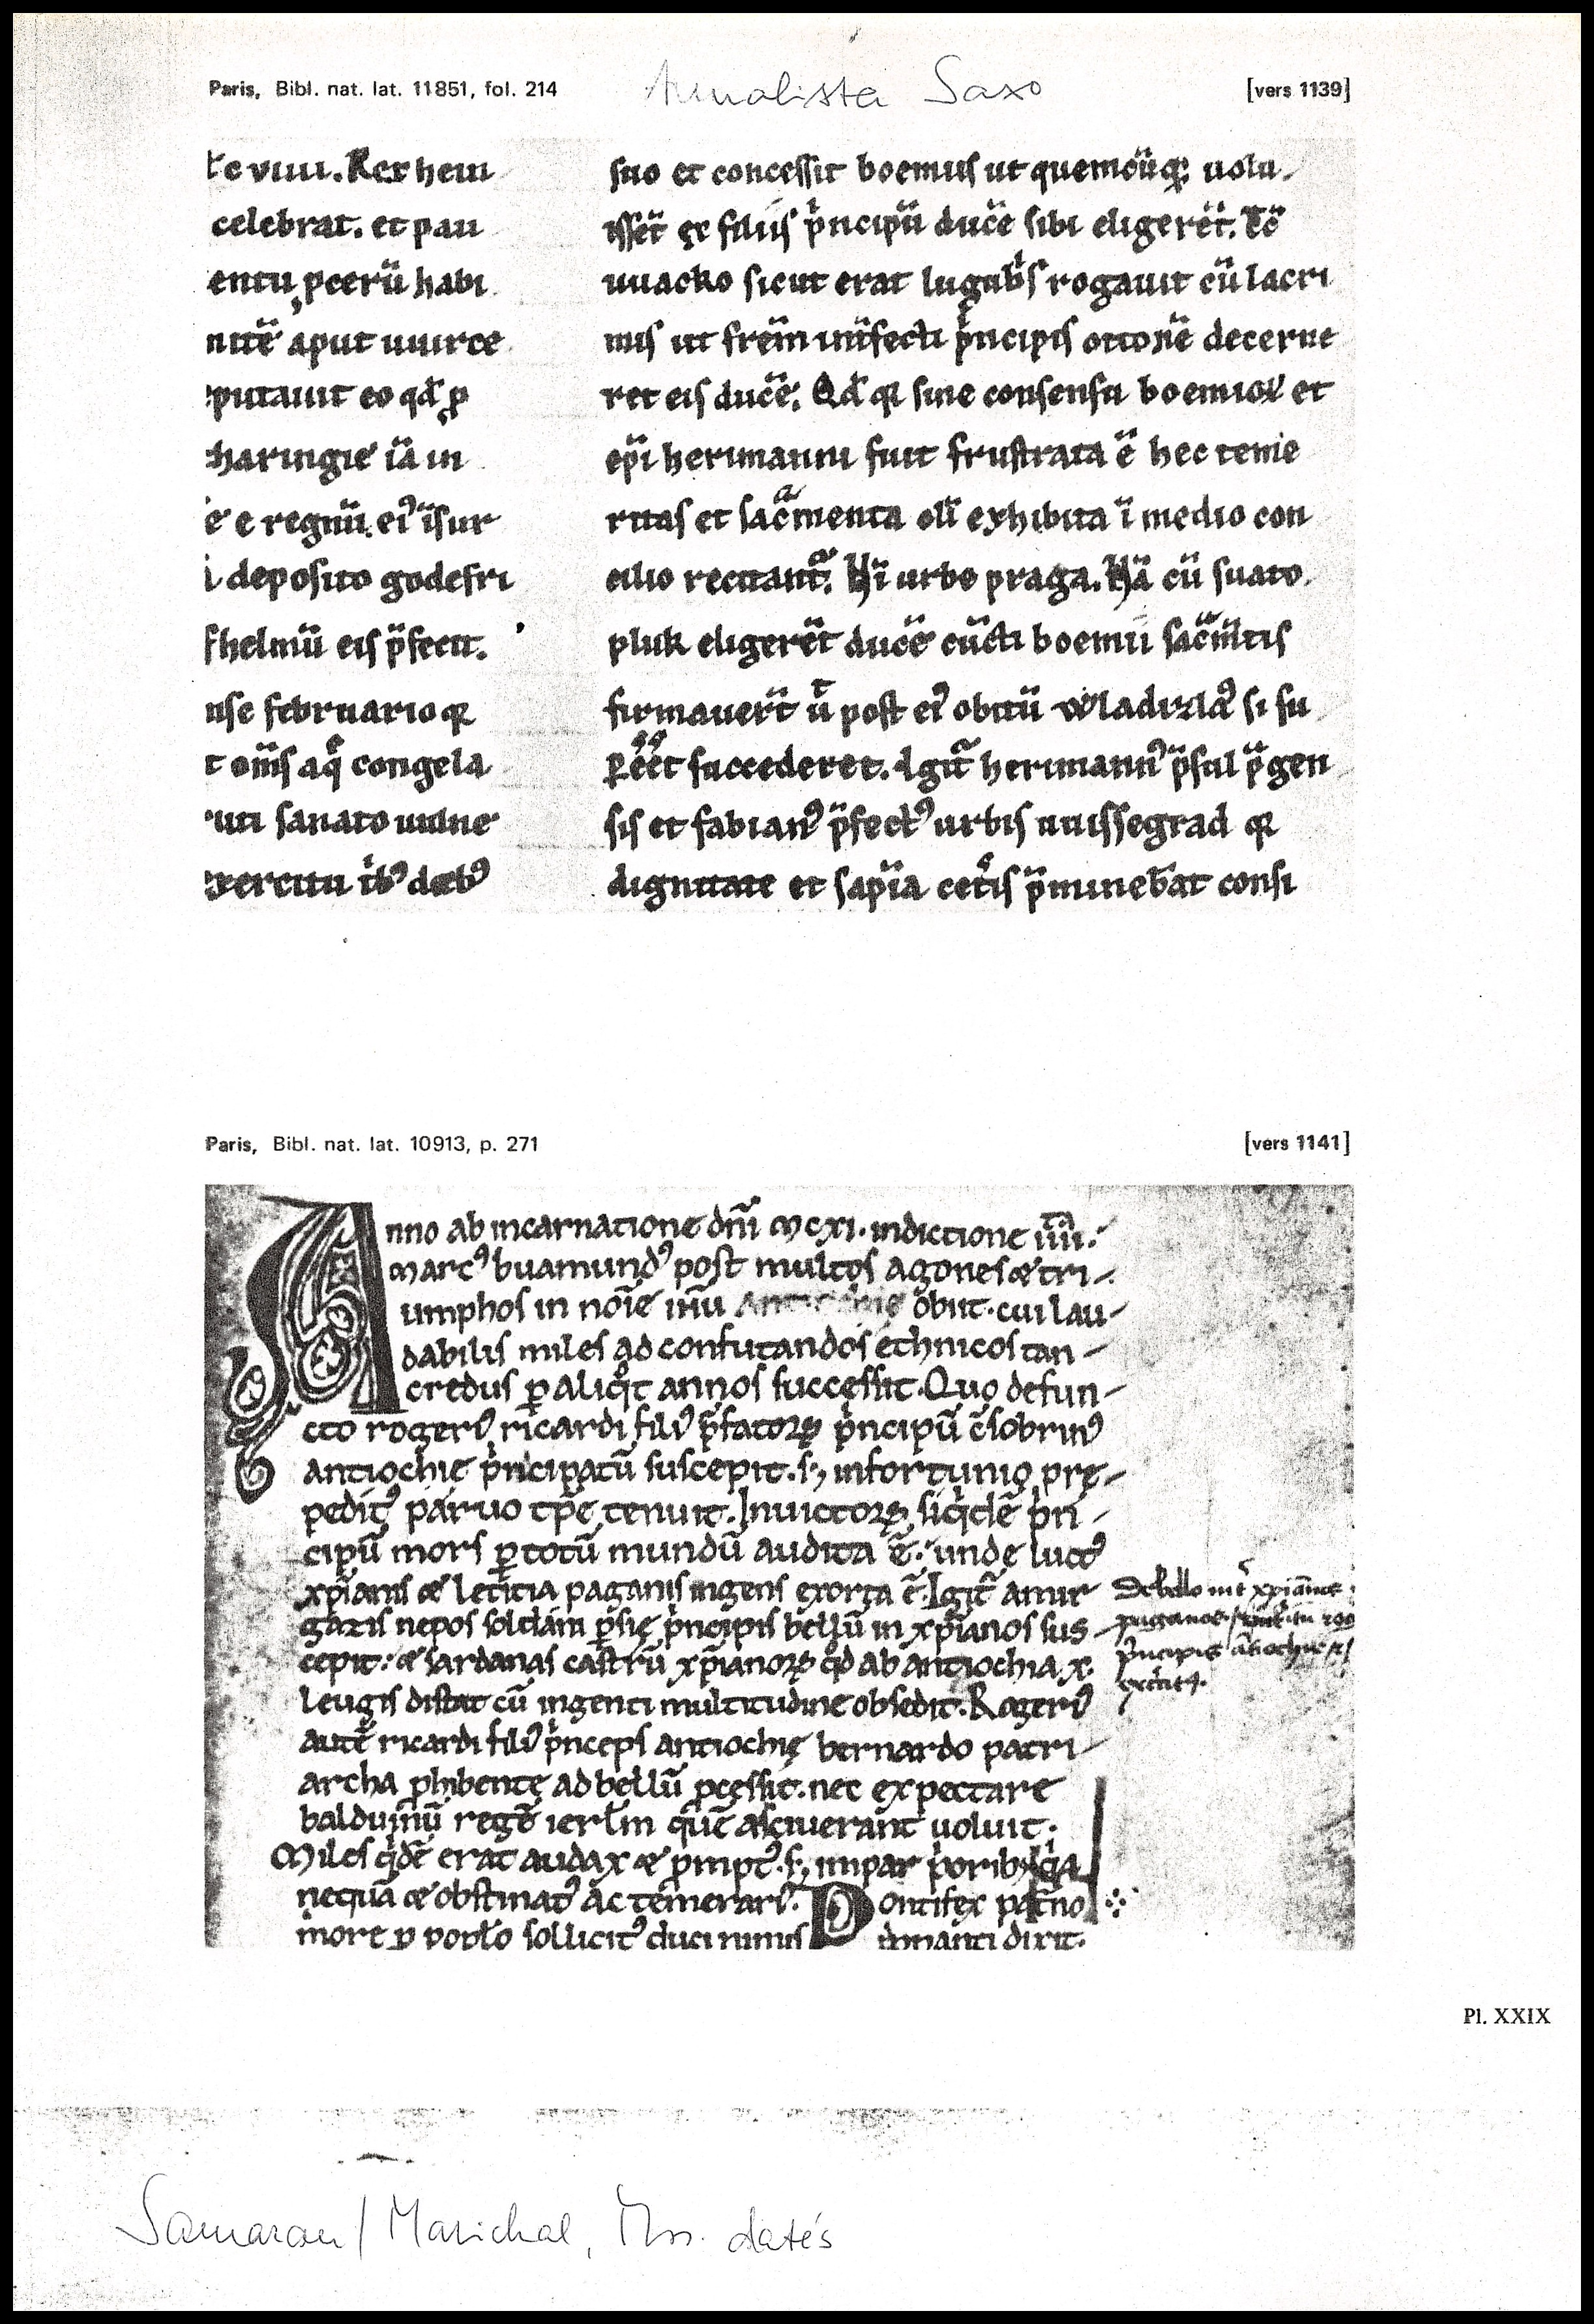 Paris, Bibl. nat. lat. 11851, fol. 214
Annalista Saxo
[vers 1139]
te viiii. Rex hein
celebrat. et pau
entu pcerū habi
nitē aput uuirce
putauit eo qđ ꝓ
tharingie iā in
e e regnū. eiꝰ īsur
deposito godefri
fhelmū eis p̄fecit.
nse februario qꝛ
t om̄s aq̄ congela
uti sanato uulne
exercitu tͥbꝰ dͣebꝰ
suo et concessit boemus ut quemcūqꝫ uolu
issēt ex filiis pͥncipū ducē sibi eligerēt. Tc̄
uuacko sicut erat lugubͥs rogauit cū lacri
mis ut frēm int̄fecti pͥncipis ottonē decerne
ret eis ducē. Qđ qꝛ sine consensu boemioꝝ et
ep̄i herimanni fuit frustrata ē hec teme
ritas et sacͣmenta oli exhibita ī medio con
cilio recitantᷓ. Hī urbe praga. Nā cū suato
pluk eligerēt ducē cūcti boemii sacͣm̄tis
firmauer̄t ut̄ post eiꝰ obitū wladizlaꝰ si su
ꝑēēt succederet. Igit᷑ herimannꝰ p̄sul pͣgen
sis et fabianꝰ p̄fectꝰ urbis uuissegrad qꝛ
dignitate et sap̄ia cet̄is p̄minebāt consi
Paris, Bibl. nat. lat. 10913, p. 271
[vers 1141]
Anno ab incarnatione dn̄i mcxi. indictione iiii.ᵗᵃ
marcꝰ buamundꝰ post multos agones & tri
umphos in noīe ih̄u Antiochie obiit. cui lau
dabilis miles ad confutandos ethnicos tan
credus ꝑ aliqͦt annos successit. Quo defun
cto rogerꝰ ricardi filiꝰ p̄fatoꝝ pͥncipū c̄sobrinꝰ
antiochie pͥncipatū suscepit. sꝫ infortunio prę
peditꝰ paruo tp̄e tenuit. Inuictoꝝ siqͥdē pͥn
cipū mors ꝑ totū mundū audita ē. unde luctꝰ
xp̄ianis & letitia paganis ingens exorta ē. Igit᷑ amir
gazis nepos soldani ꝑsię pͥncipis bellū in xp̄ianos sus
cepit. & sardanas castrū xp̄ianoꝝ qđ ab antiochia x.
leugis distat cū ingenti multitudine obsedit. Rogerꝰ
autē ricardi filiꝰ pͥnceps antiochię bernardo patri
archa ꝓhibente ad bellū ꝓcessit. nec expectare
balduinū regē ierl̄m quē asciuerant uoluit.
Miles qͥdē erat audax & ꝓmptꝰ. sꝫ impar pͥoribꝫ qͥa
nequā & obstinatꝰ ac temerariꝰ. Pontifex pat̄no
more ꝓ popl̄o sollicitꝰ duci nimis minanti dixit.
De bello int̄ xp̄ianos
paganos
pͥncipis antiochie
Pl. XXIX
Samaran/Marichal, Mss. datés